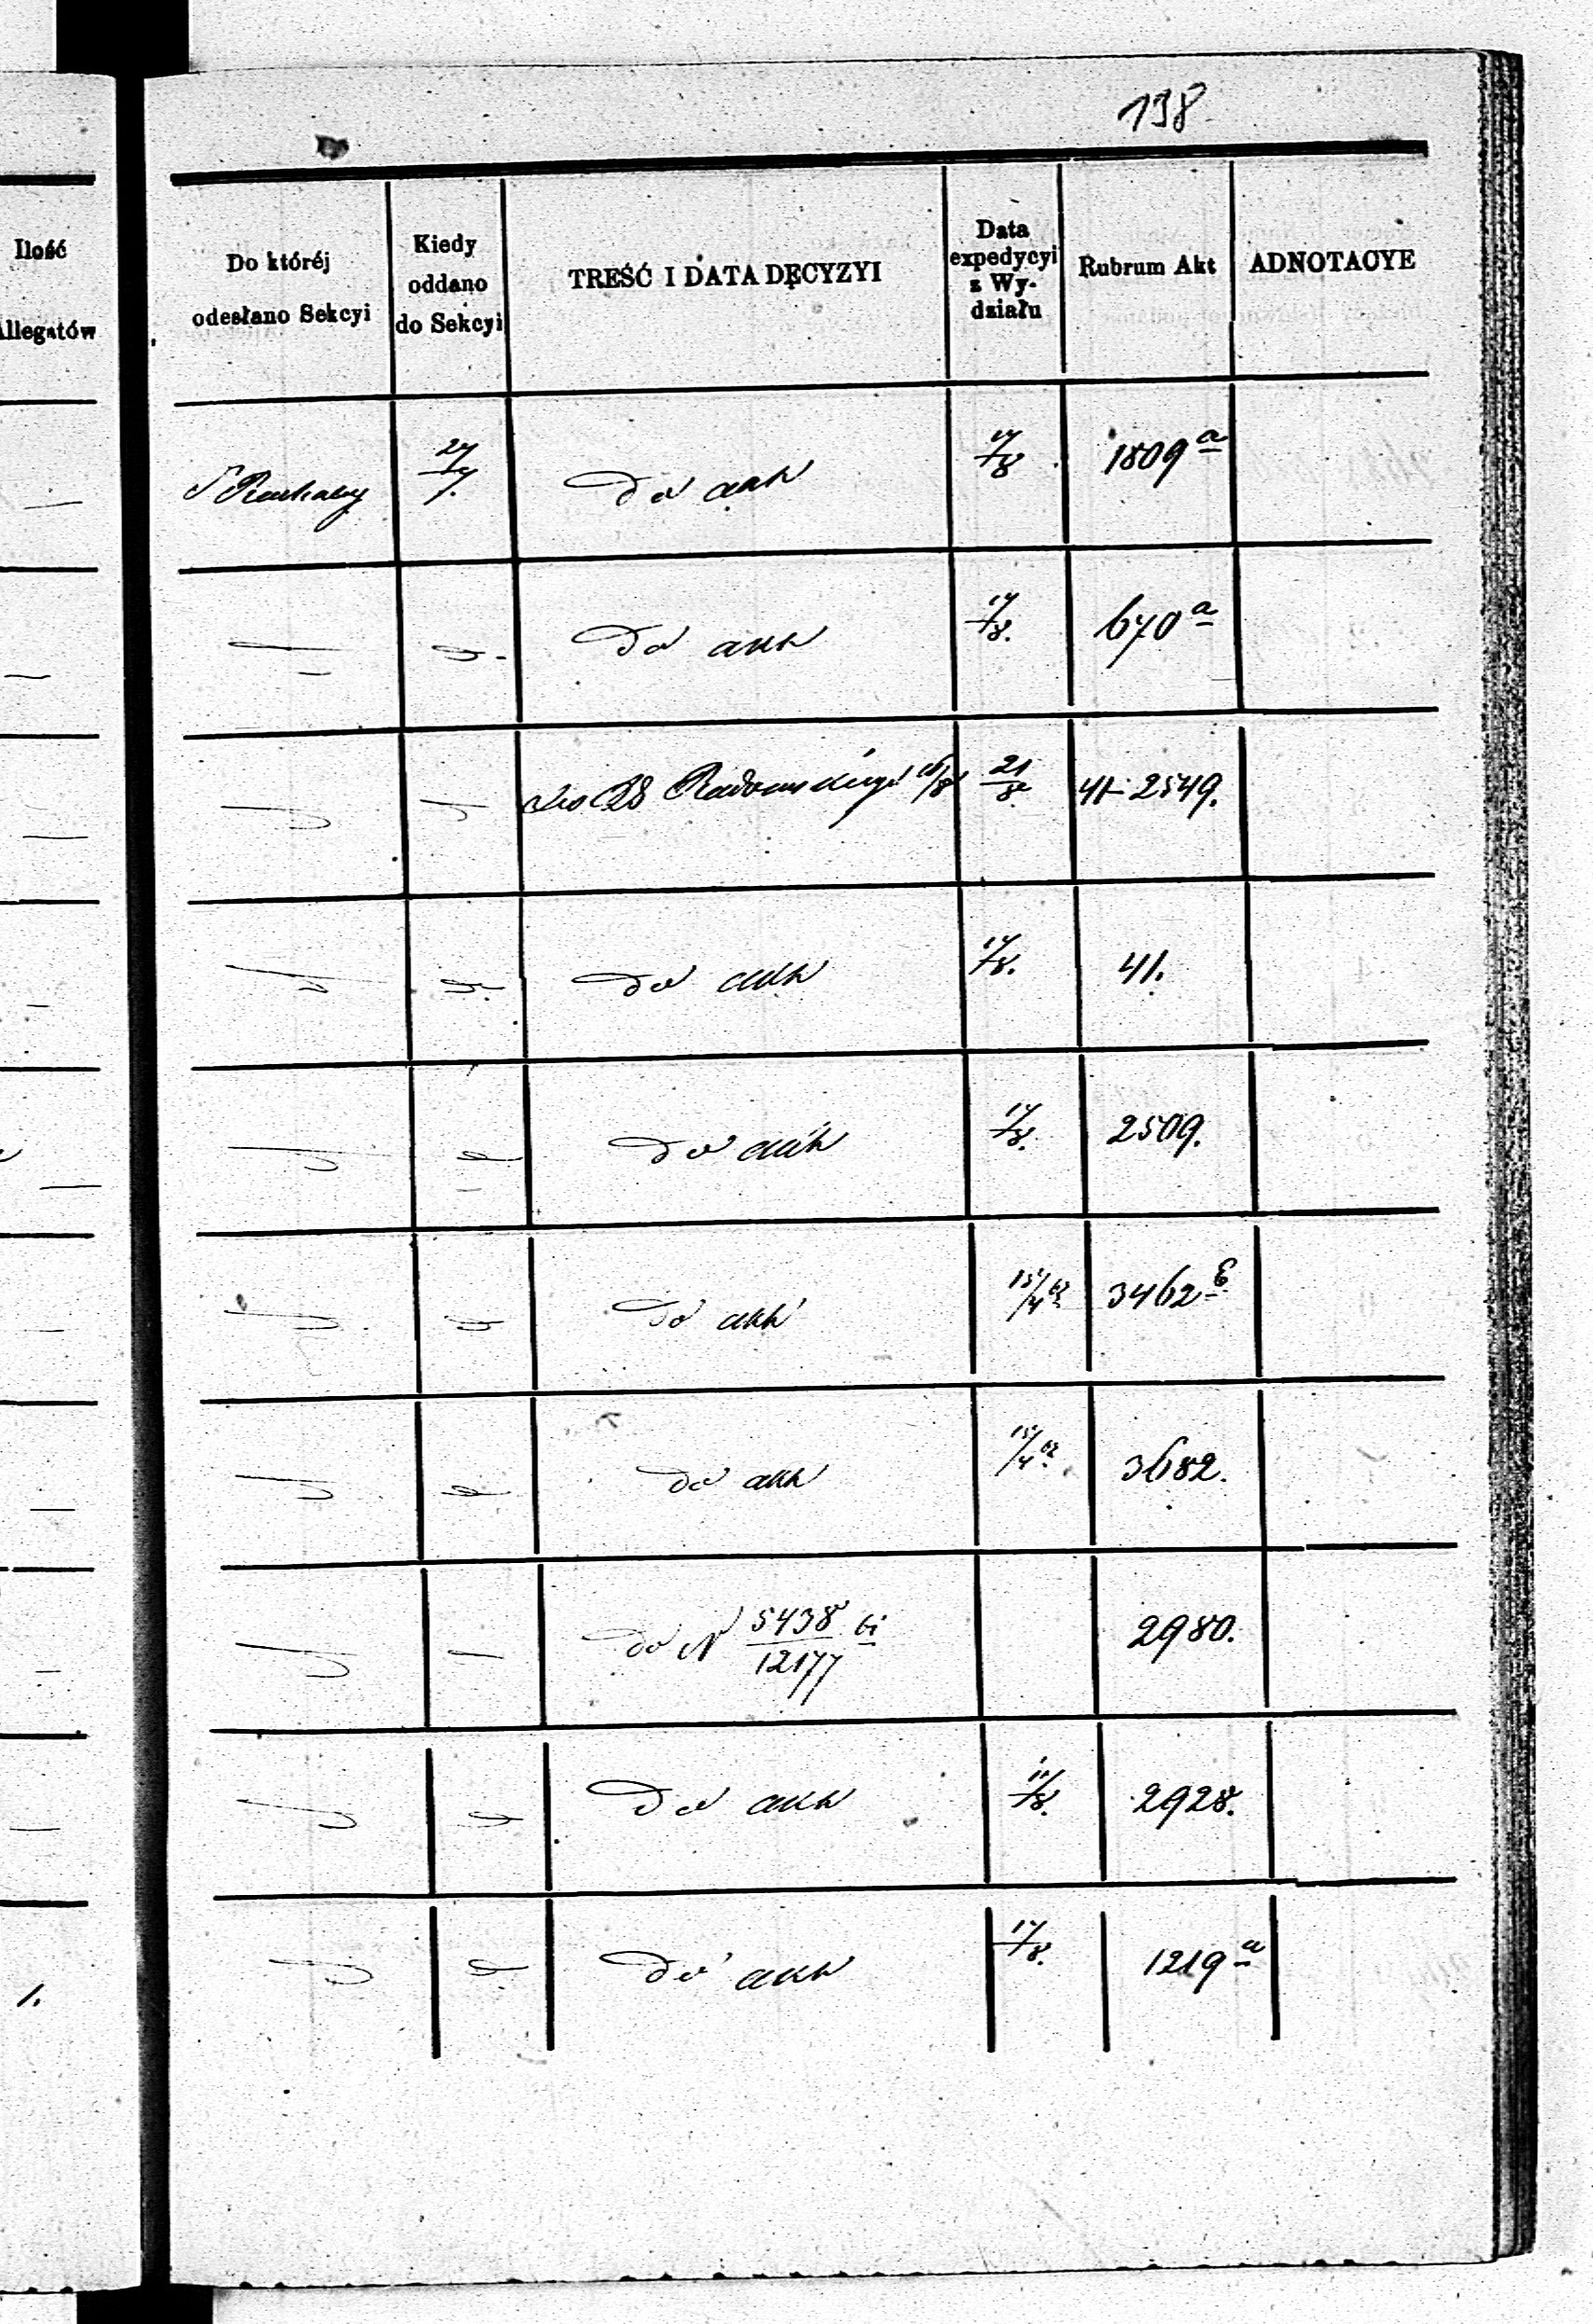 138
Ilość
Allegatów
Do któréj
odesłano Sekcyi
Kiedy
oddano
do Sekcyi
TREŚĆ I DATA DECYZYI
Data
expedycyi
z Wy-
działu
Rubrum Akt
ADNOTACYE
27/7. do akt 17/8 1809 a
do akt 17/8. 670 a
do Radomskiego 21/8 41-2549.
do akt 17/8. 41.
do akt 17/8. 2509.
do akt 15/4 62 3462
do akt 15/4 62 3682.
do N 5438/12177 2980.
do akt 2928.
1. do akt 17/8. 1219 a